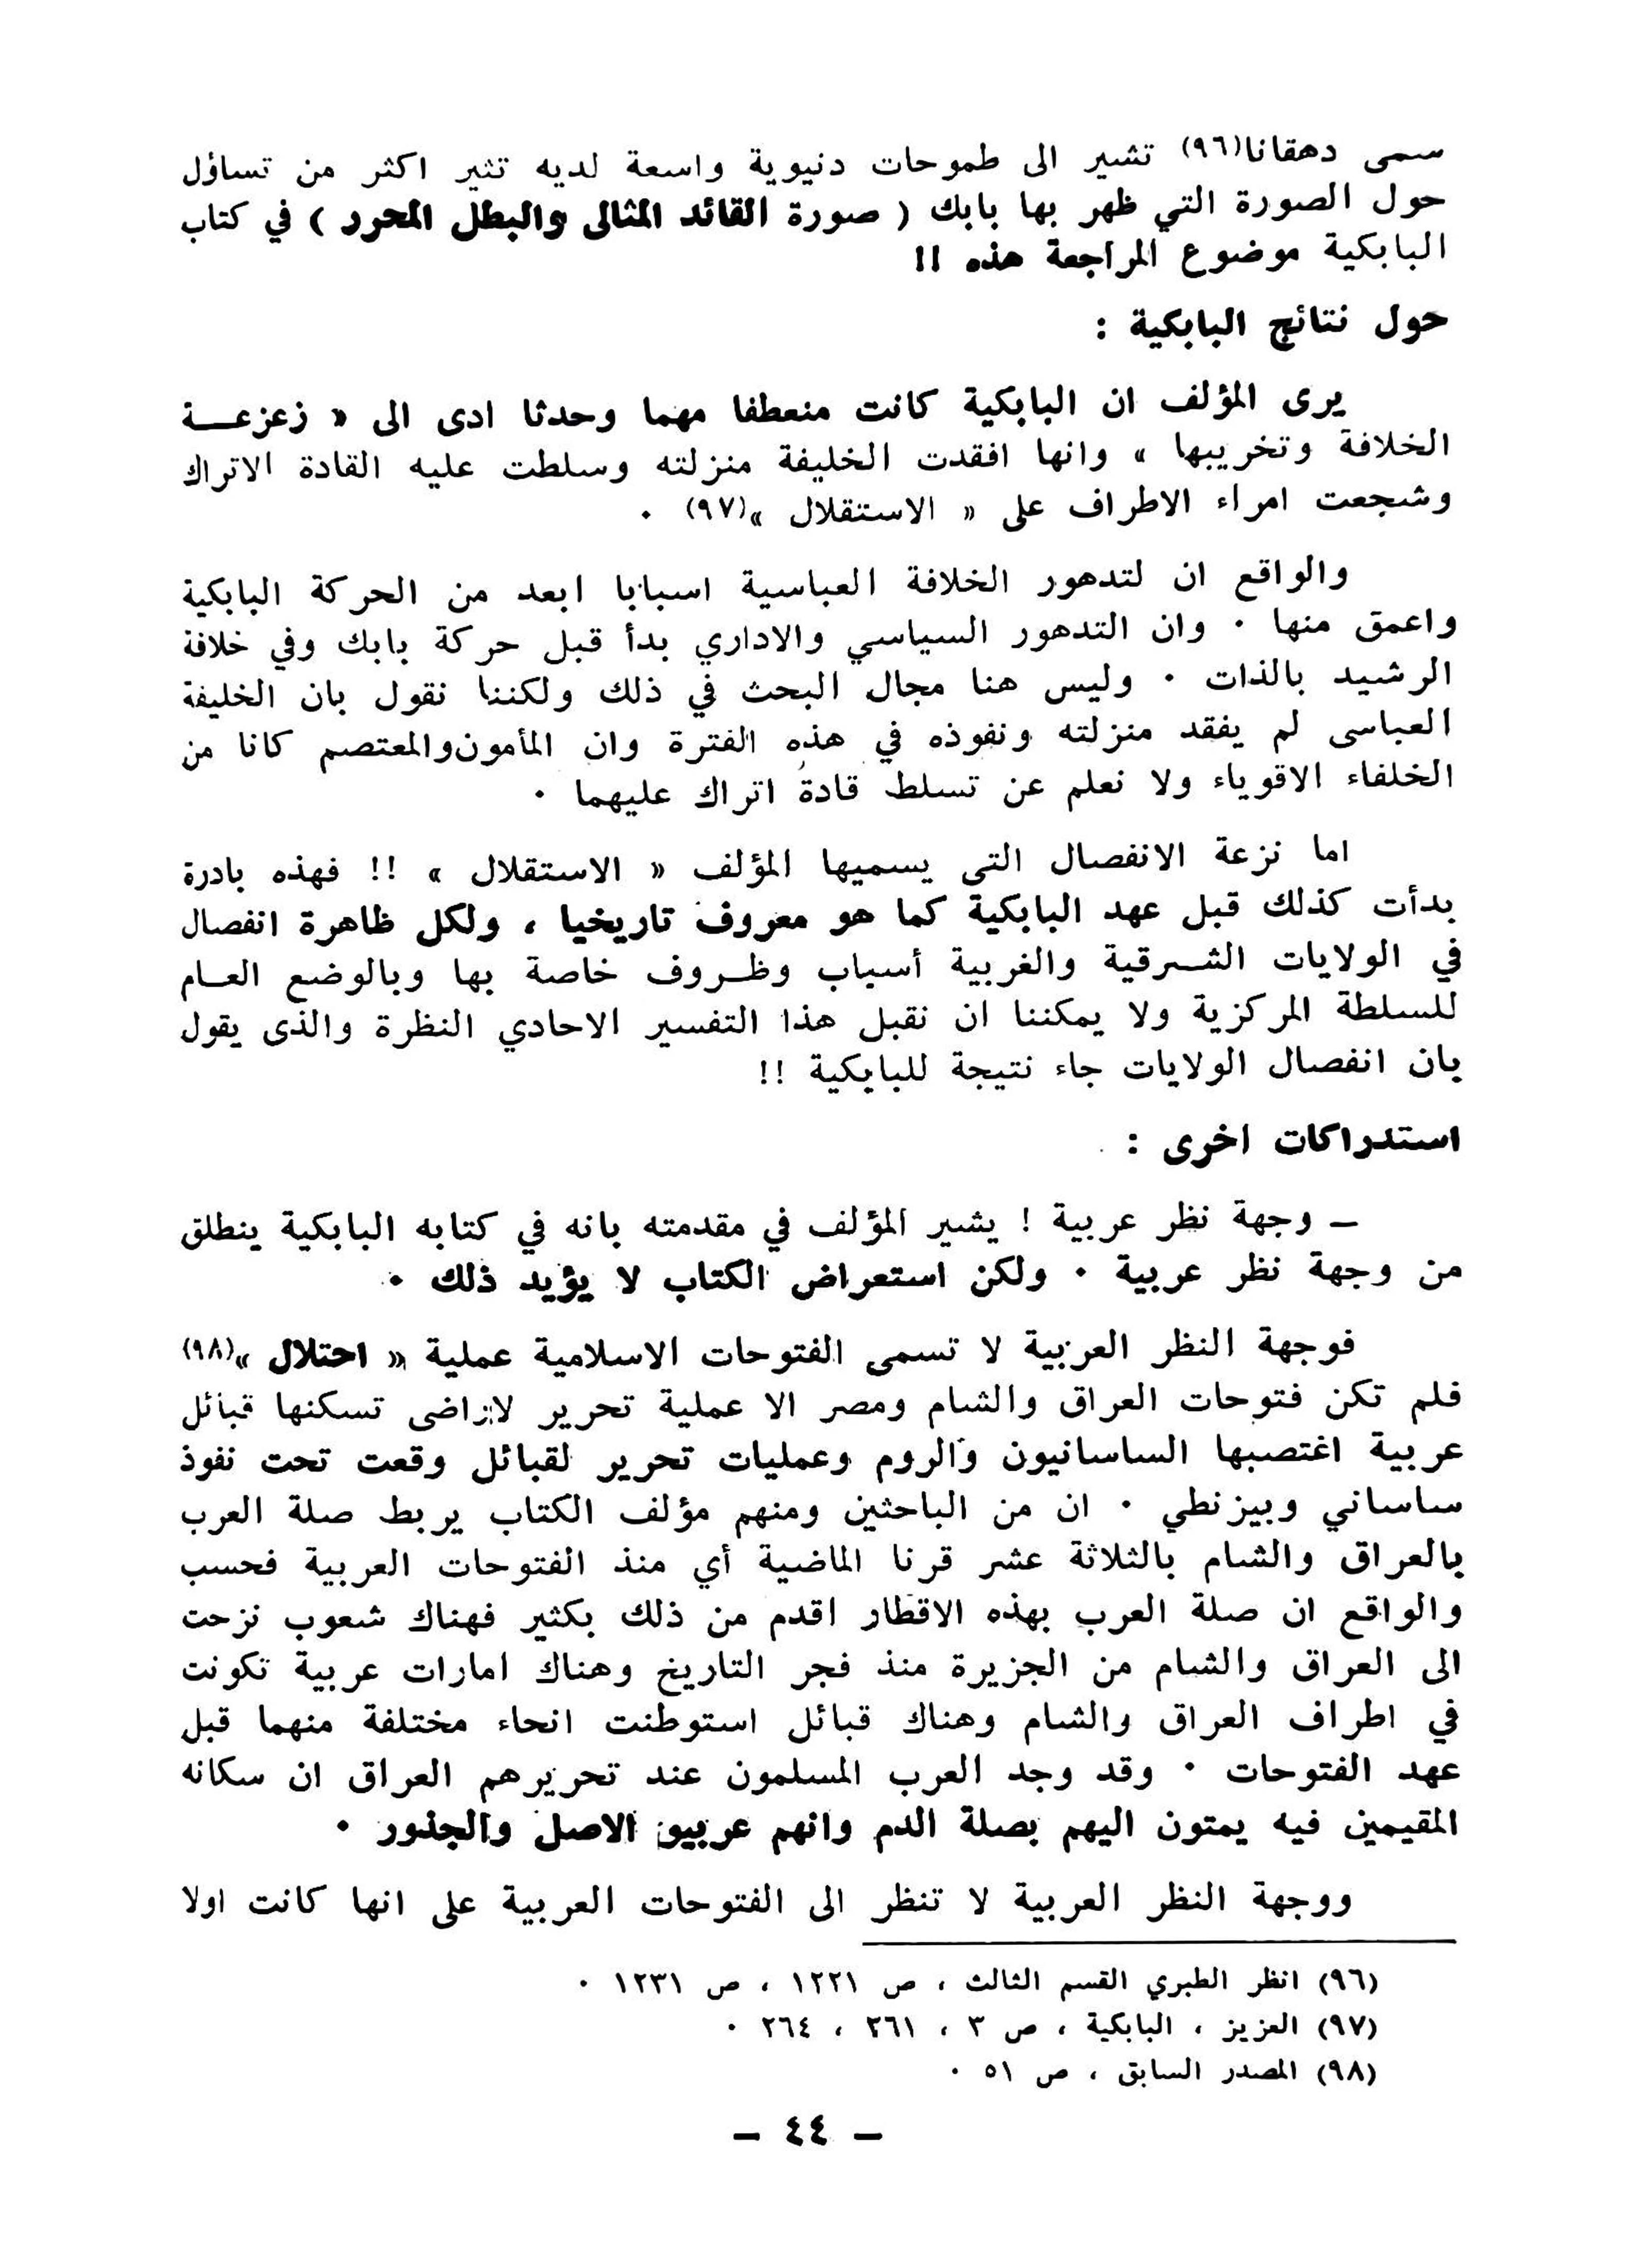 سمى دهقانا(٩٦) تشير الى طموحات دنيوية واسعة لديه تثير اكثر من تساؤل
حول الصورة التي ظهر بها بابك ( صورة القائد المثالى والبطل المحرر ) في كتاب
البابكية موضوع المراجعة هذه !!
حول نتائج البابكية :
يرى المؤلف ان البابكية كانت منعطفا مهما وحدثا ادى الى « زعزعـــة
الخلافة وتخريبها » وانها افقدت الخليفة منزلته وسلطت عليه القادة الاتراك
وشجعت امراء الاطراف على « الاستقلال »(٩٧) ٠
والواقع ان لتدهور الخلافة العباسية اسبابا ابعد من الحركة البابكية
واعمق منها ٠ وان التدهور السياسي والاداري بدأ قبل حركة بابك وفي خلافة
الرشيد بالذات ٠ وليس هنا مجال البحث في ذلك ولكننا نقول بان الخليفة
العباسى لم يفقد منزلته ونفوذه في هذه الفترة وان المأمون والمعتصم كانا من
الخلفاء الاقوياء ولا نعلم عن تسلط قادة اتراك عليهما ٠
اما نزعة الانفصال التى يسميها المؤلف « الاستقلال » !! فهذه بادرة
بدأت كذلك قبل عهد البابكية كما هو معروف تاريخيا ، ولكل ظاهرة انفصال
في الولايات الشــرقية والغربية أسباب وظــروف خاصة بها وبالوضع العـام
للسلطة المركزية ولا يمكننا ان نقبل هذا التفسير الاحادي النظرة والذى يقول
بان انفصال الولايات جاء نتيجة للبابكية !!
استدراكات اخرى :
— وجهة نظر عربية ! يشير المؤلف في مقدمته بانه في كتابه البابكية ينطلق
من وجهة نظر عربية ٠ ولكن استعراض الكتاب لا يؤيد ذلك ٠
فوجهة النظر العربية لا تسمى الفتوحات الاسلامية عملية « احتلال »(٩٨)
فلم تكن فتوحات العراق والشام ومصر الا عملية تحرير لاراضى تسكنها قبائل
عربية اغتصبها الساسانيون والروم وعمليات تحرير لقبائل وقعت تحت نفوذ
ساساني وبيزنطي ٠ ان من الباحثين ومنهم مؤلف الكتاب يربط صلة العرب
بالعراق والشام بالثلاثة عشر قرنا الماضية أي منذ الفتوحات العربية فحسب
والواقع ان صلة العرب بهذه الاقطار اقدم من ذلك بكثير فهناك شعوب نزحت
الى العراق والشام من الجزيرة منذ فجر التاريخ وهناك امارات عربية تكونت
في اطراف العراق والشام وهناك قبائل استوطنت انحاء مختلفة منهما قبل
عهد الفتوحات ٠ وقد وجد العرب المسلمون عند تحريرهم العراق ان سكانه
المقيمين فيه يمتون اليهم بصلة الدم وانهم عربيو الاصل والجذور ٠
ووجهة النظر العربية لا تنظر الى الفتوحات العربية على انها كانت اولا
(٩٦) انظر الطبري القسم الثالث ، ص ١٢٢١ ، ص ١٢٣١ ٠
(٩٧) العزيز ، البابكية ، ص ٣ ، ٢٦١ ، ٢٦٤ ٠
(٩٨) المصدر السابق ، ص ٥١ ٠
— ٤٤ —